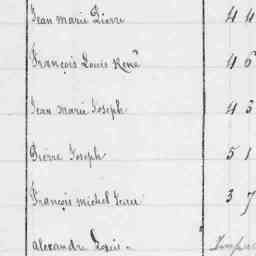 Jean marie Pierre 44
François Louis René 46
Jean marie Joseph 43
Pierre Joseph 51
François michel 37
alexandre Louis